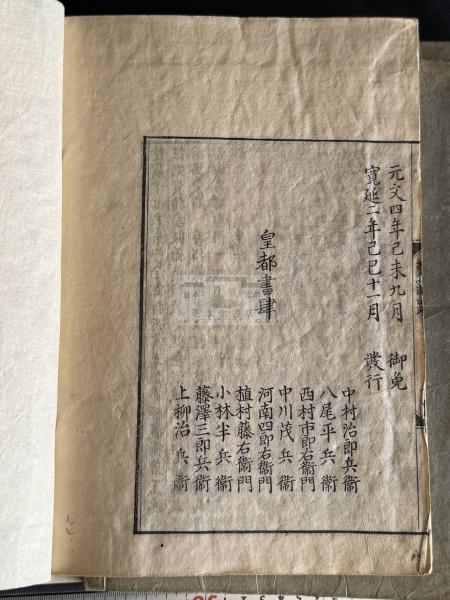 元文四年己未九月 御免
寛延二年己巳十一月 發行
皇都書肆
中村治郎兵衞
八尾平兵衞
西村市郎右衞門
中川茂兵衞
河南四郎右衞門
植村藤右衞門
小林半兵衞
藤澤三郎兵衞
上柳治兵衞